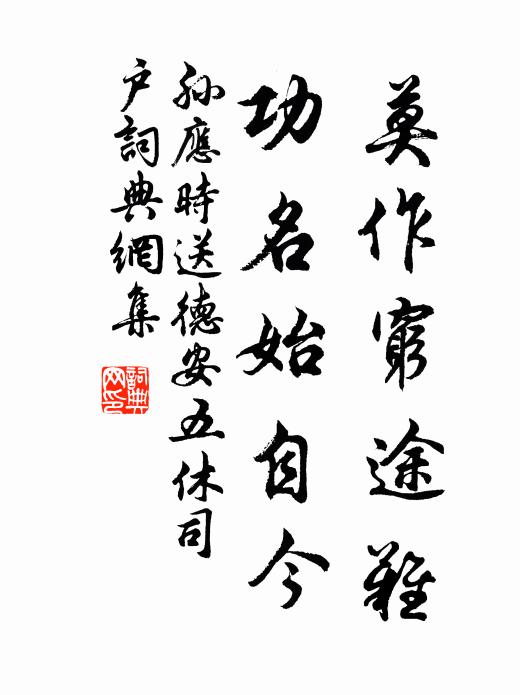 莫作窮途難
功名始自今
孫應時送德安五休司
戶詞典網集
詞典網印